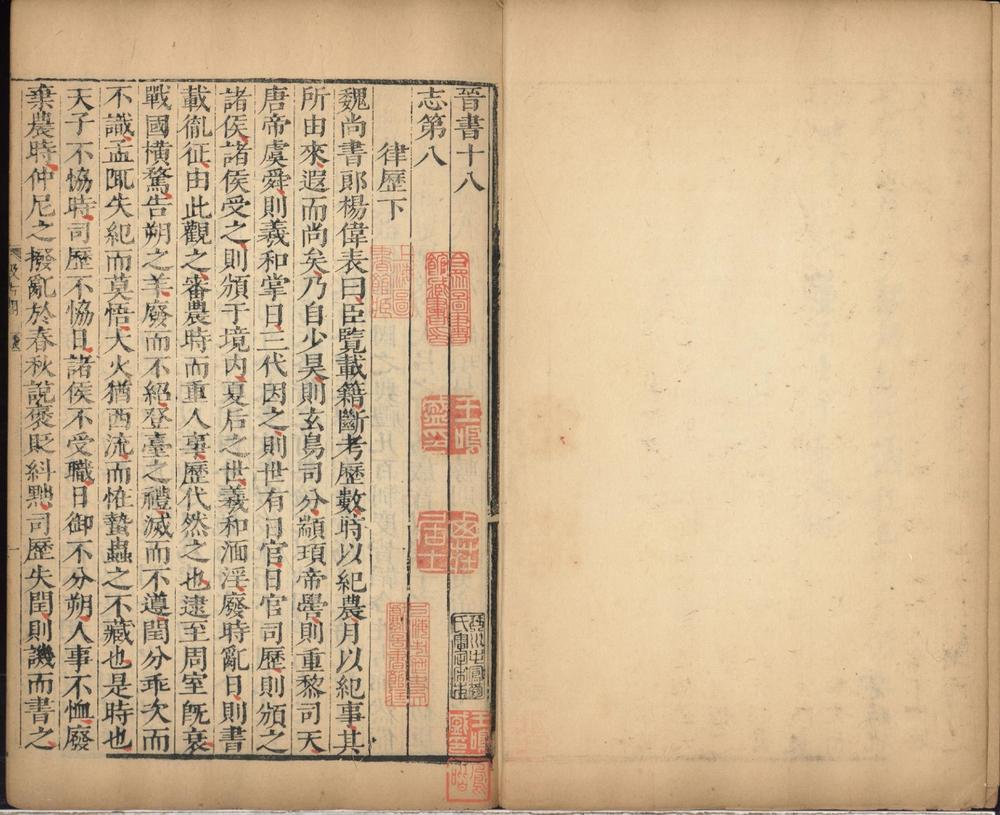 晉書十八
志第八
律歷下
魏尚書郎楊偉表曰臣覽載籍斷考歷數時以紀農月以紀事其
所由來遐而尚矣乃自少昊則玄鳥司分顓頊帝嚳則重黎司天
唐帝虞舜則羲和掌日三代因之則世有日官日官司歷則頒之
諸侯諸侯受之則頒于境内夏后之世羲和湎淫廢時亂日則書
載胤征由此觀之審農時而重人事歷代然之也逮至周室旣衰
戰國橫騖告朔之羊廢而不紹登臺之禮滅而不遵閏分乖次而
不識孟陬失紀而莫悟大火猶西流而恠蟄蟲之不藏也是時也
天子不恊時司歷不恊日諸侯不受職日御不分朔人事不恤廢
棄農時仲尼之撥亂於春秋說褒貶糾黜司歷失閏則譏而書之
上海圖書館藏
王鳴盛印
西莊居士
王鳴盛印